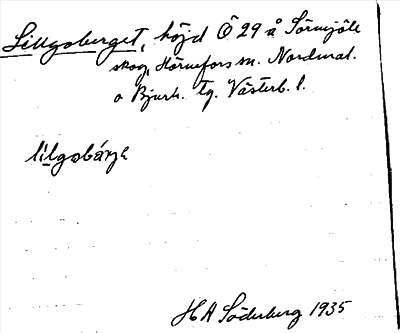 Lillgoberget, höjd Ö 29 å Sörmjöle
skog, Hörnefors sn. Nordmal.
o Bjurh. tg. Västerb. l.
lilgobárge
H A Söderberg 1935